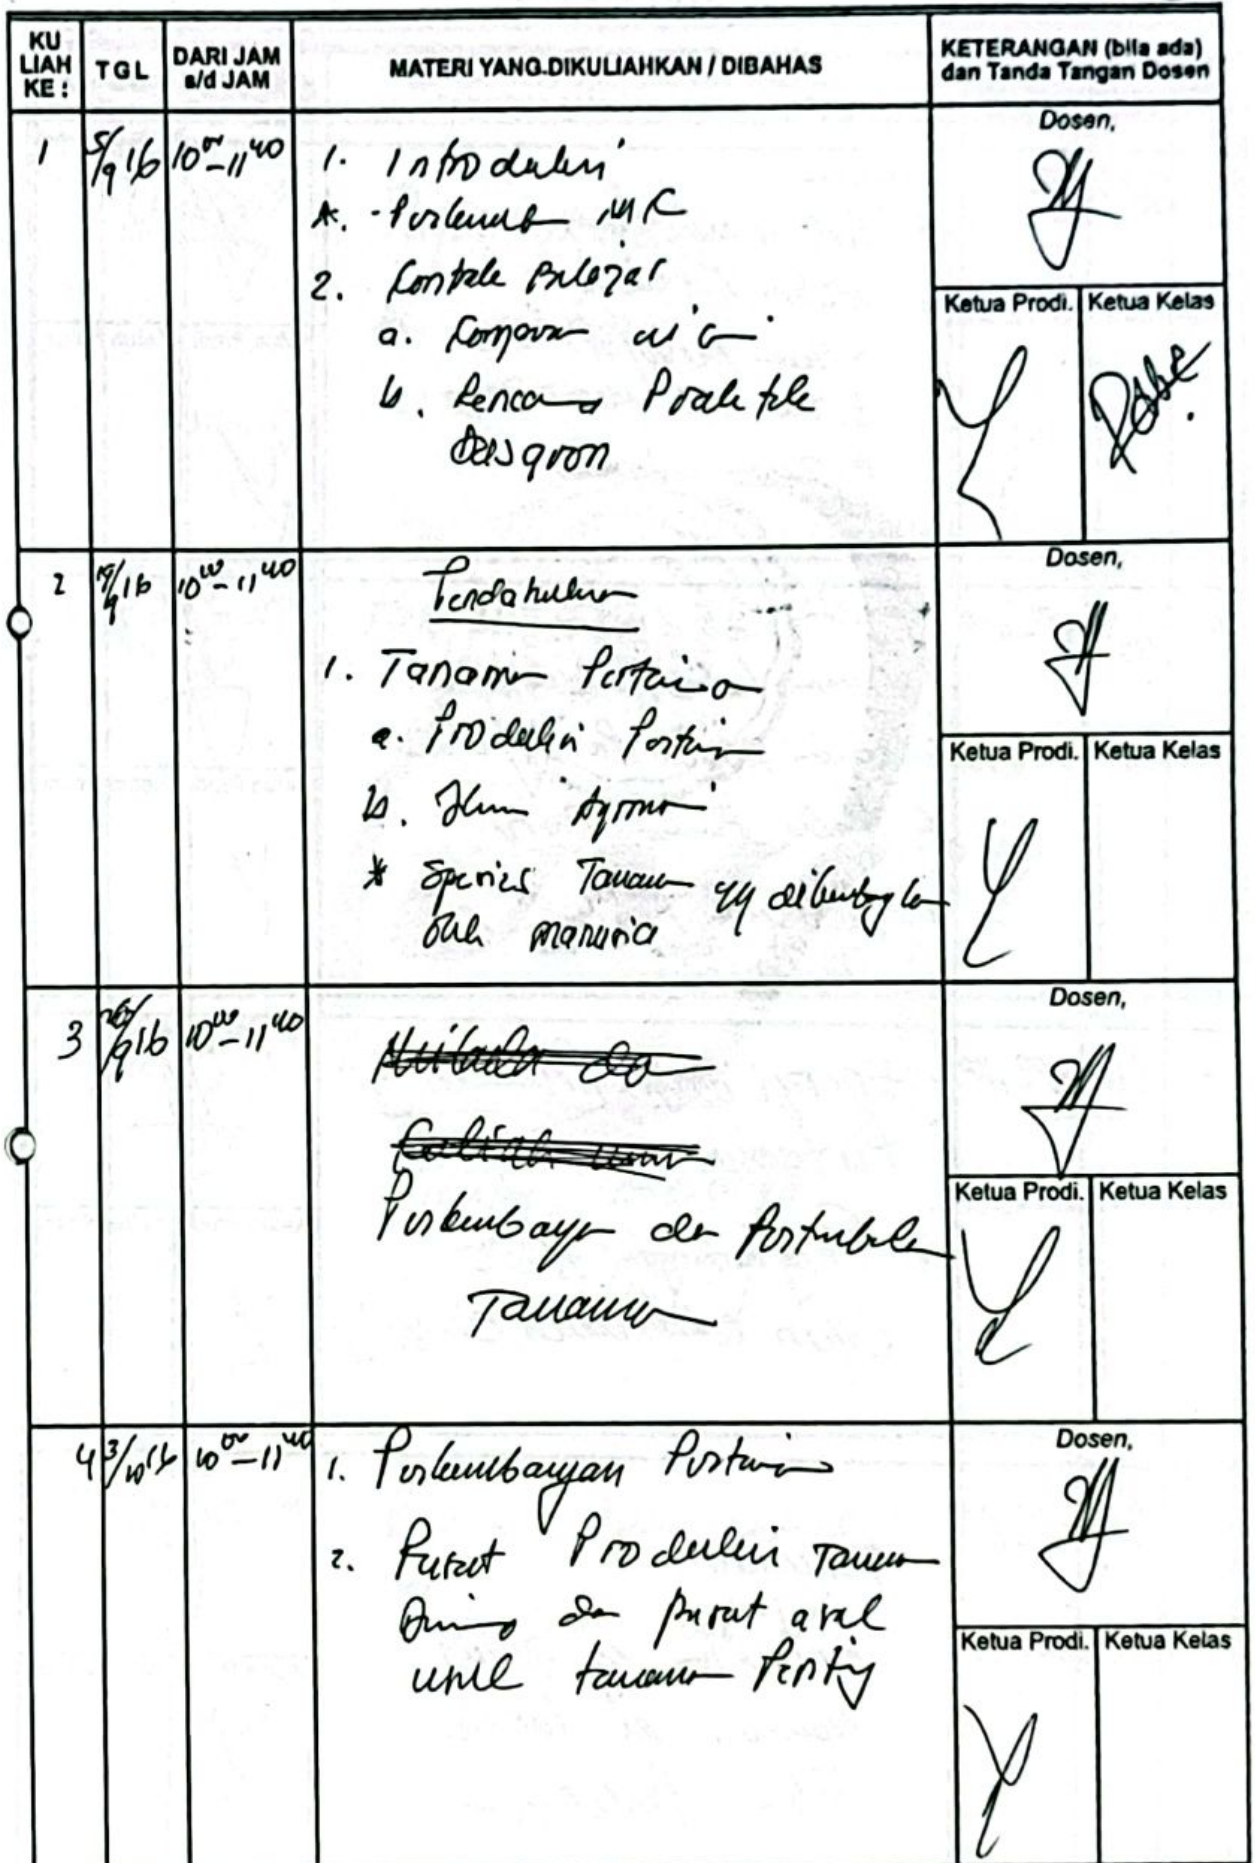 KU
LIAH
KE :
TGL
DARI JAM
s/d JAM
MATERI YANG DIKULIAHKAN / DIBAHAS
KETERANGAN (bila ada)
dan Tanda Tangan Dosen
1
5/9 16
10 00 - 11 40
1. Introduksi
2. Kontrak Belajar
a.
b. Rencana Praktek
Dasgron
Dosen,
Ketua Prodi.
Ketua Kelas
2
9 16
10 00 - 11 40
Pendahuluan
1. Tanaman Pertanian
a. Produksi Pertanian
b. Ilmu Agronomi
* Spesies Tanaman yg
oleh manusia
Dosen,
Ketua Prodi.
Ketua Kelas
3
26/9 16
10 00 - 11 40
Perkembangan dan
Tanaman
Dosen,
Ketua Prodi.
Ketua Kelas
4
3/10 16
10 00 - 11 40
1. Perkembangan Pertanian
2. Pusat Produksi Tanaman
Dunia dan pusat asal
usul tanaman Penting
Dosen,
Ketua Prodi.
Ketua Kelas